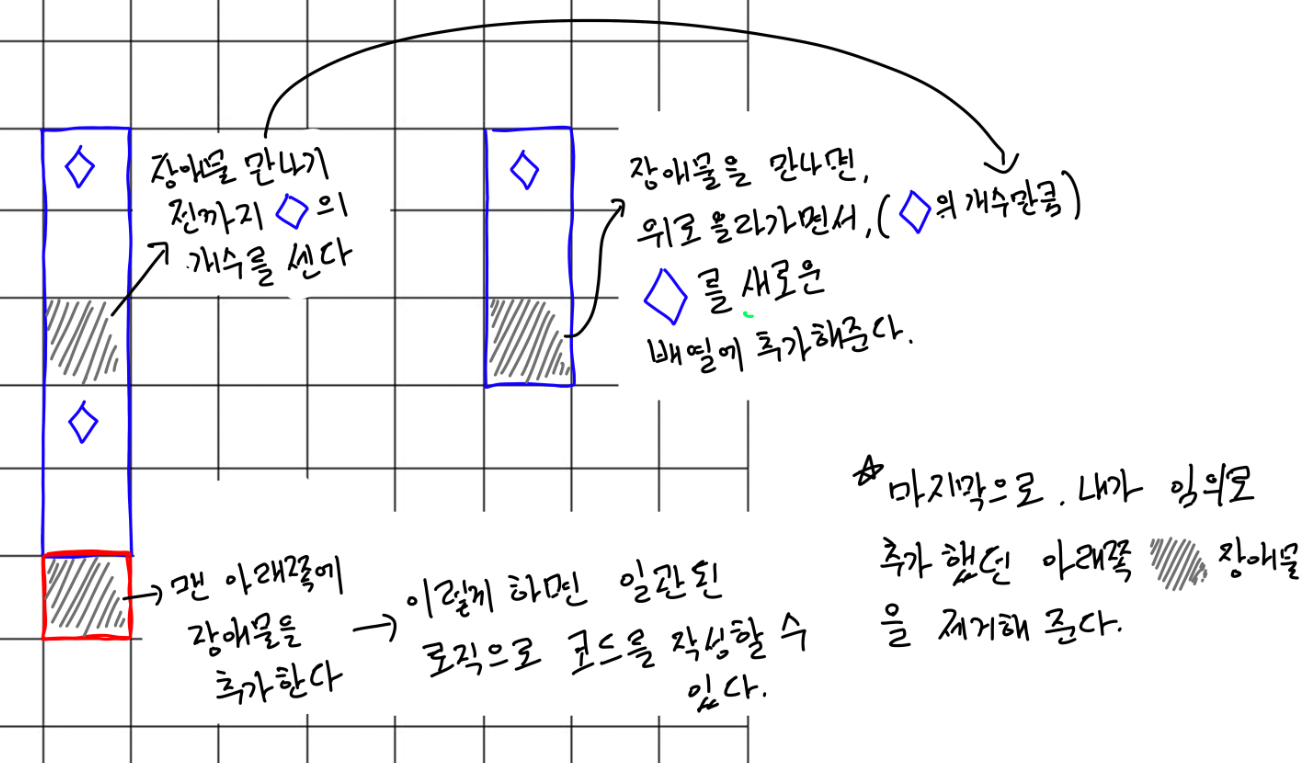 장애물 만나기
전까지 ◇의
개수를 센다
장애물을 만나면,
위로 올라가면서, (◇의 개수만큼)
◇를 새로운
배열에 추가해준다.
맨 아래쪽에
장애물을
추가한다
이렇게 하면 일관된
로직으로 코드를 작성할 수
있다.
☆ 마지막으로. 내가 임의로
추가 했던 아래쪽 장애물
을 제거해 준다.